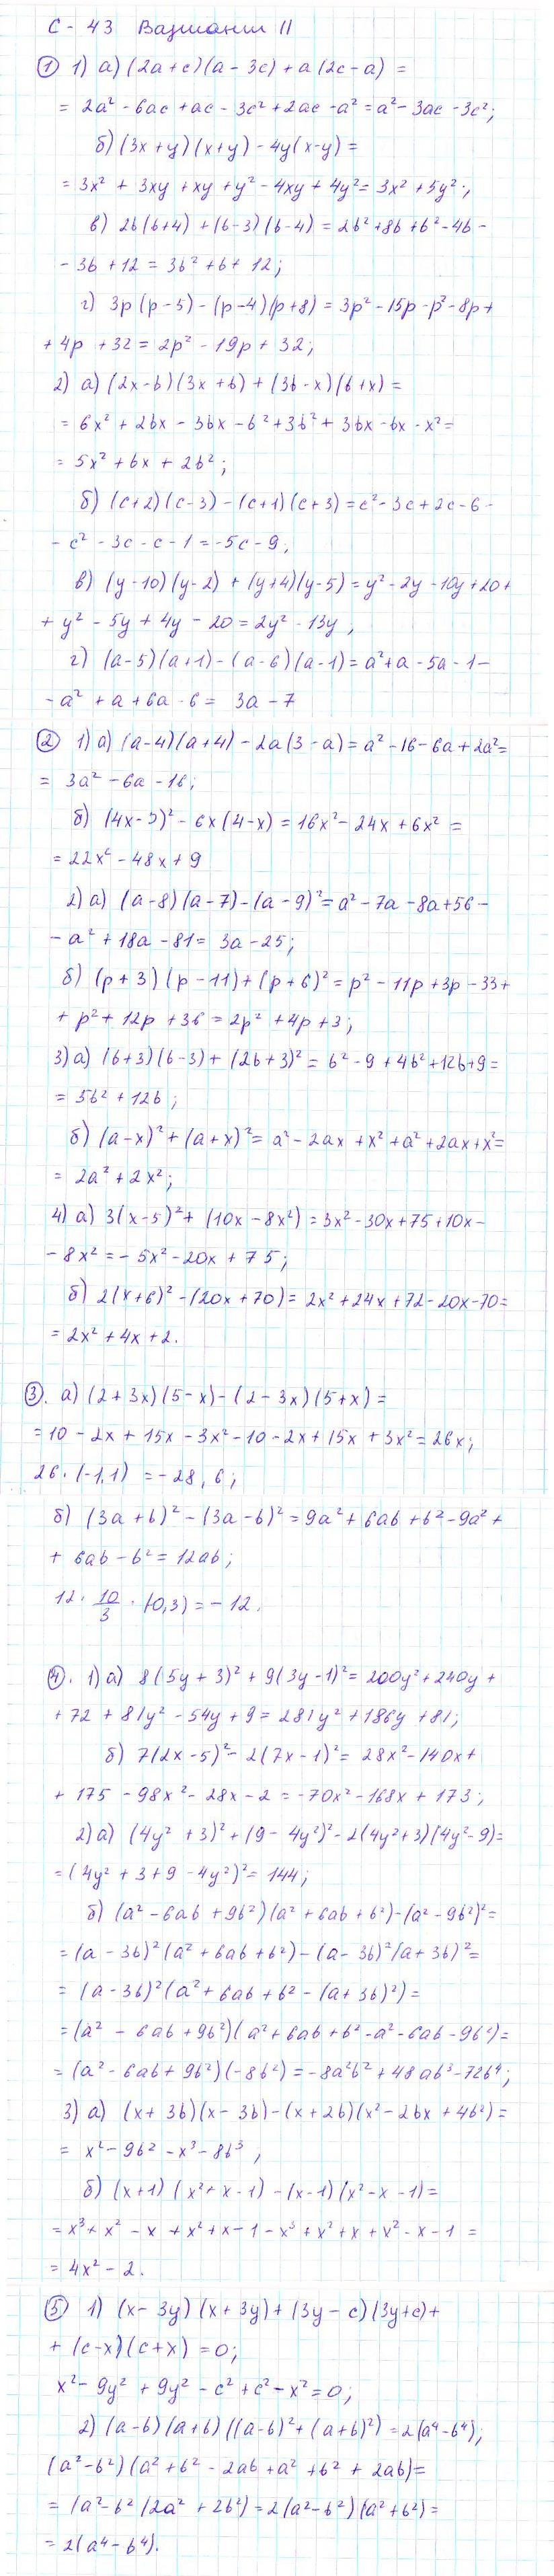 С - 43 Вариант II
① 1) а) (2a+c)(a - 3c) + a(2c - a) =
= 2a² - 6ac + ac - 3c² + 2ac - a² = a² - 3ac - 3c²;
б) (3x + y)(x + y) - 4y(x - y) =
= 3x² + 3xy + xy + y² - 4xy + 4y² = 3x² + 5y²;
в) 2b(b+4) + (b-3)(b-4) = 2b² + 8b + b² - 4b -
- 3b + 12 = 3b² + b + 12;
г) 3p(p - 5) - (p - 4)(p + 8) = 3p² - 15p - p² - 8p +
+ 4p + 32 = 2p² - 19p + 32;
2) а) (2x - b)(3x + b) + (3b - x)(b + x) =
= 6x² + 2bx - 3bx - b² + 3b² + 3bx - bx - x² =
= 5x² + bx + 2b²;
б) (c+2)(c-3) - (c+1)(c+3) = c² - 3c + 2c - 6 -
- c² - 3c - c - 1 = -5c - 9;
в) (y - 10)(y - 2) + (y+4)(y-5) = y² - 2y - 10y + 20 +
+ y² - 5y + 4y - 20 = 2y² - 13y;
г) (a - 5)(a+1) - (a - 6)(a - 1) = a² + a - 5a - 1 -
- a² + a + 6a - 6 = 3a - 7
② 1) а) (a-4)(a+4) - 2a(3 - a) = a² - 16 - 6a + 2a² =
= 3a² - 6a - 16;
б) (4x - 3)² - 6x(4 - x) = 16x² - 24x + 6x² =
= 22x² - 48x + 9
2) а) (a - 8)(a - 7) - (a - 9)² = a² - 7a - 8a + 56 -
- a² + 18a - 81 = 3a - 25;
б) (p + 3)(p - 11) + (p + 6)² = p² - 11p + 3p - 33 +
+ p² + 12p + 36 = 2p² + 4p + 3;
3) а) (b+3)(b-3) + (2b+3)² = b² - 9 + 4b² + 12b + 9 =
= 5b² + 12b;
б) (a - x)² + (a + x)² = a² - 2ax + x² + a² + 2ax + x² =
= 2a² + 2x²;
4) а) 3(x - 5)² + (10x - 8x²) = 3x² - 30x + 75 + 10x -
- 8x² = - 5x² - 20x + 75;
б) 2(x+6)² - (20x + 70) = 2x² + 24x + 72 - 20x - 70 =
= 2x² + 4x + 2.
③. а) (2 + 3x)(5 - x) - (2 - 3x)(5 + x) =
= 10 - 2x + 15x - 3x² - 10 - 2x + 15x + 3x² = 26x;
26 · (-1,1) = - 28,6;
б) (3a + b)² - (3a - b)² = 9a² + 6ab + b² - 9a² +
+ 6ab - b² = 12ab;
12 · 10/3 · (0,3) = - 12.
④. 1) а) 8(5y + 3)² + 9(3y - 1)² = 200y² + 240y +
+ 72 + 81y² - 54y + 9 = 281y² + 186y + 81;
б) 7(2x - 5)² - 2(7x - 1)² = 28x² - 140x +
+ 175 - 98x² - 28x - 2 = -70x² - 168x + 173;
2) а) (4y² + 3)² + (9 - 4y²)² - 2(4y² + 3)(4y² - 9) =
= (4y² + 3 + 9 - 4y²)² = 144;
б) (a² - 6ab + 9b²)(a² + 6ab + b²) - (a² - 9b²)² =
= (a - 3b)²(a² + 6ab + b²) - (a - 3b)²(a + 3b)² =
= (a - 3b)²(a² + 6ab + b² - (a + 3b)²) =
= (a² - 6ab + 9b²)(a² + 6ab + b² - a² - 6ab - 9b²) =
= (a² - 6ab + 9b²)(-8b²) = -8a²b² + 48ab³ - 72b⁴;
3) а) (x + 3b)(x - 3b) - (x + 2b)(x² - 2bx + 4b²) =
= x² - 9b² - x³ - 8b³;
б) (x+1)(x² + x - 1) - (x - 1)(x² - x - 1) =
= x³ + x² - x + x² + x - 1 - x³ + x² + x + x² - x - 1 =
= 4x² - 2.
⑤ 1) (x - 3y)(x + 3y) + (3y - c)(3y + c) +
+ (c - x)(c + x) = 0;
x² - 9y² + 9y² - c² + c² - x² = 0;
2) (a - b)(a + b)((a - b)² + (a + b)²) = 2(a⁴ - b⁴);
(a² - b²)(a² + b² - 2ab + a² + b² + 2ab) =
= (a² - b²(2a² + 2b²) = 2(a² - b²)(a² + b²) =
= 2(a⁴ - b⁴).